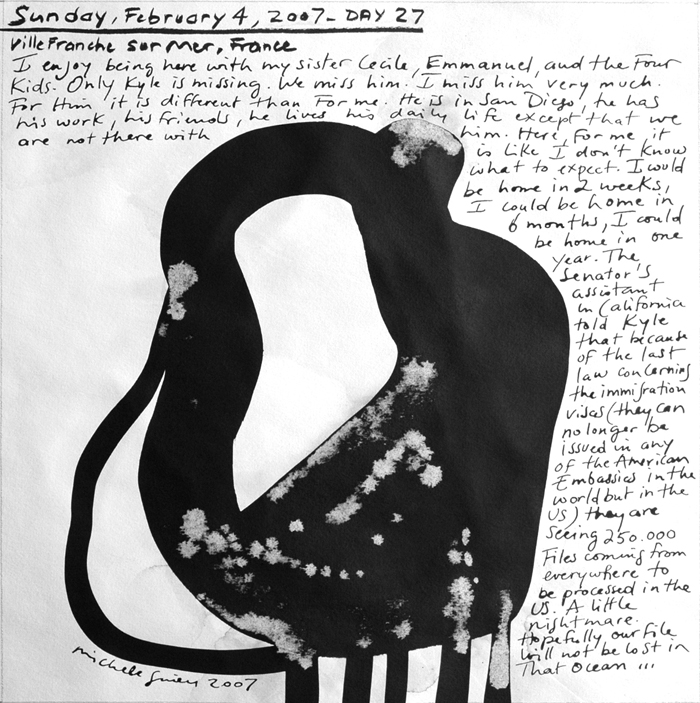 Sunday, February 4, 2007 - DAY 27
Ville Franche sur mer, France
I enjoy being here with my sister Cecile, Emmanuel, and the Four
Kids. Only Kyle is missing. We miss him. I miss him very much.
For Him it is different than For me. He is in San Diego, he has
his work, his friends, he lives his daily life except that we
are not there with him. Here, for me, it
is like I don't know
what to expect. I could
be home in 2 weeks,
I could be home in
6 months, I could
be home in one
year. The
Senator's
assistant
in California
told Kyle
that because
of the last
law concerning
the immigration
visas (they can
no longer be
issued in any
of the American
Embassies in the
world but in the
US) they are
seeing 250.000
Files coming from
everywhere to
be processed in the
US. A little
nightmare.
Hopefully our file
will not be lost in
That Ocean ...
michele 2007